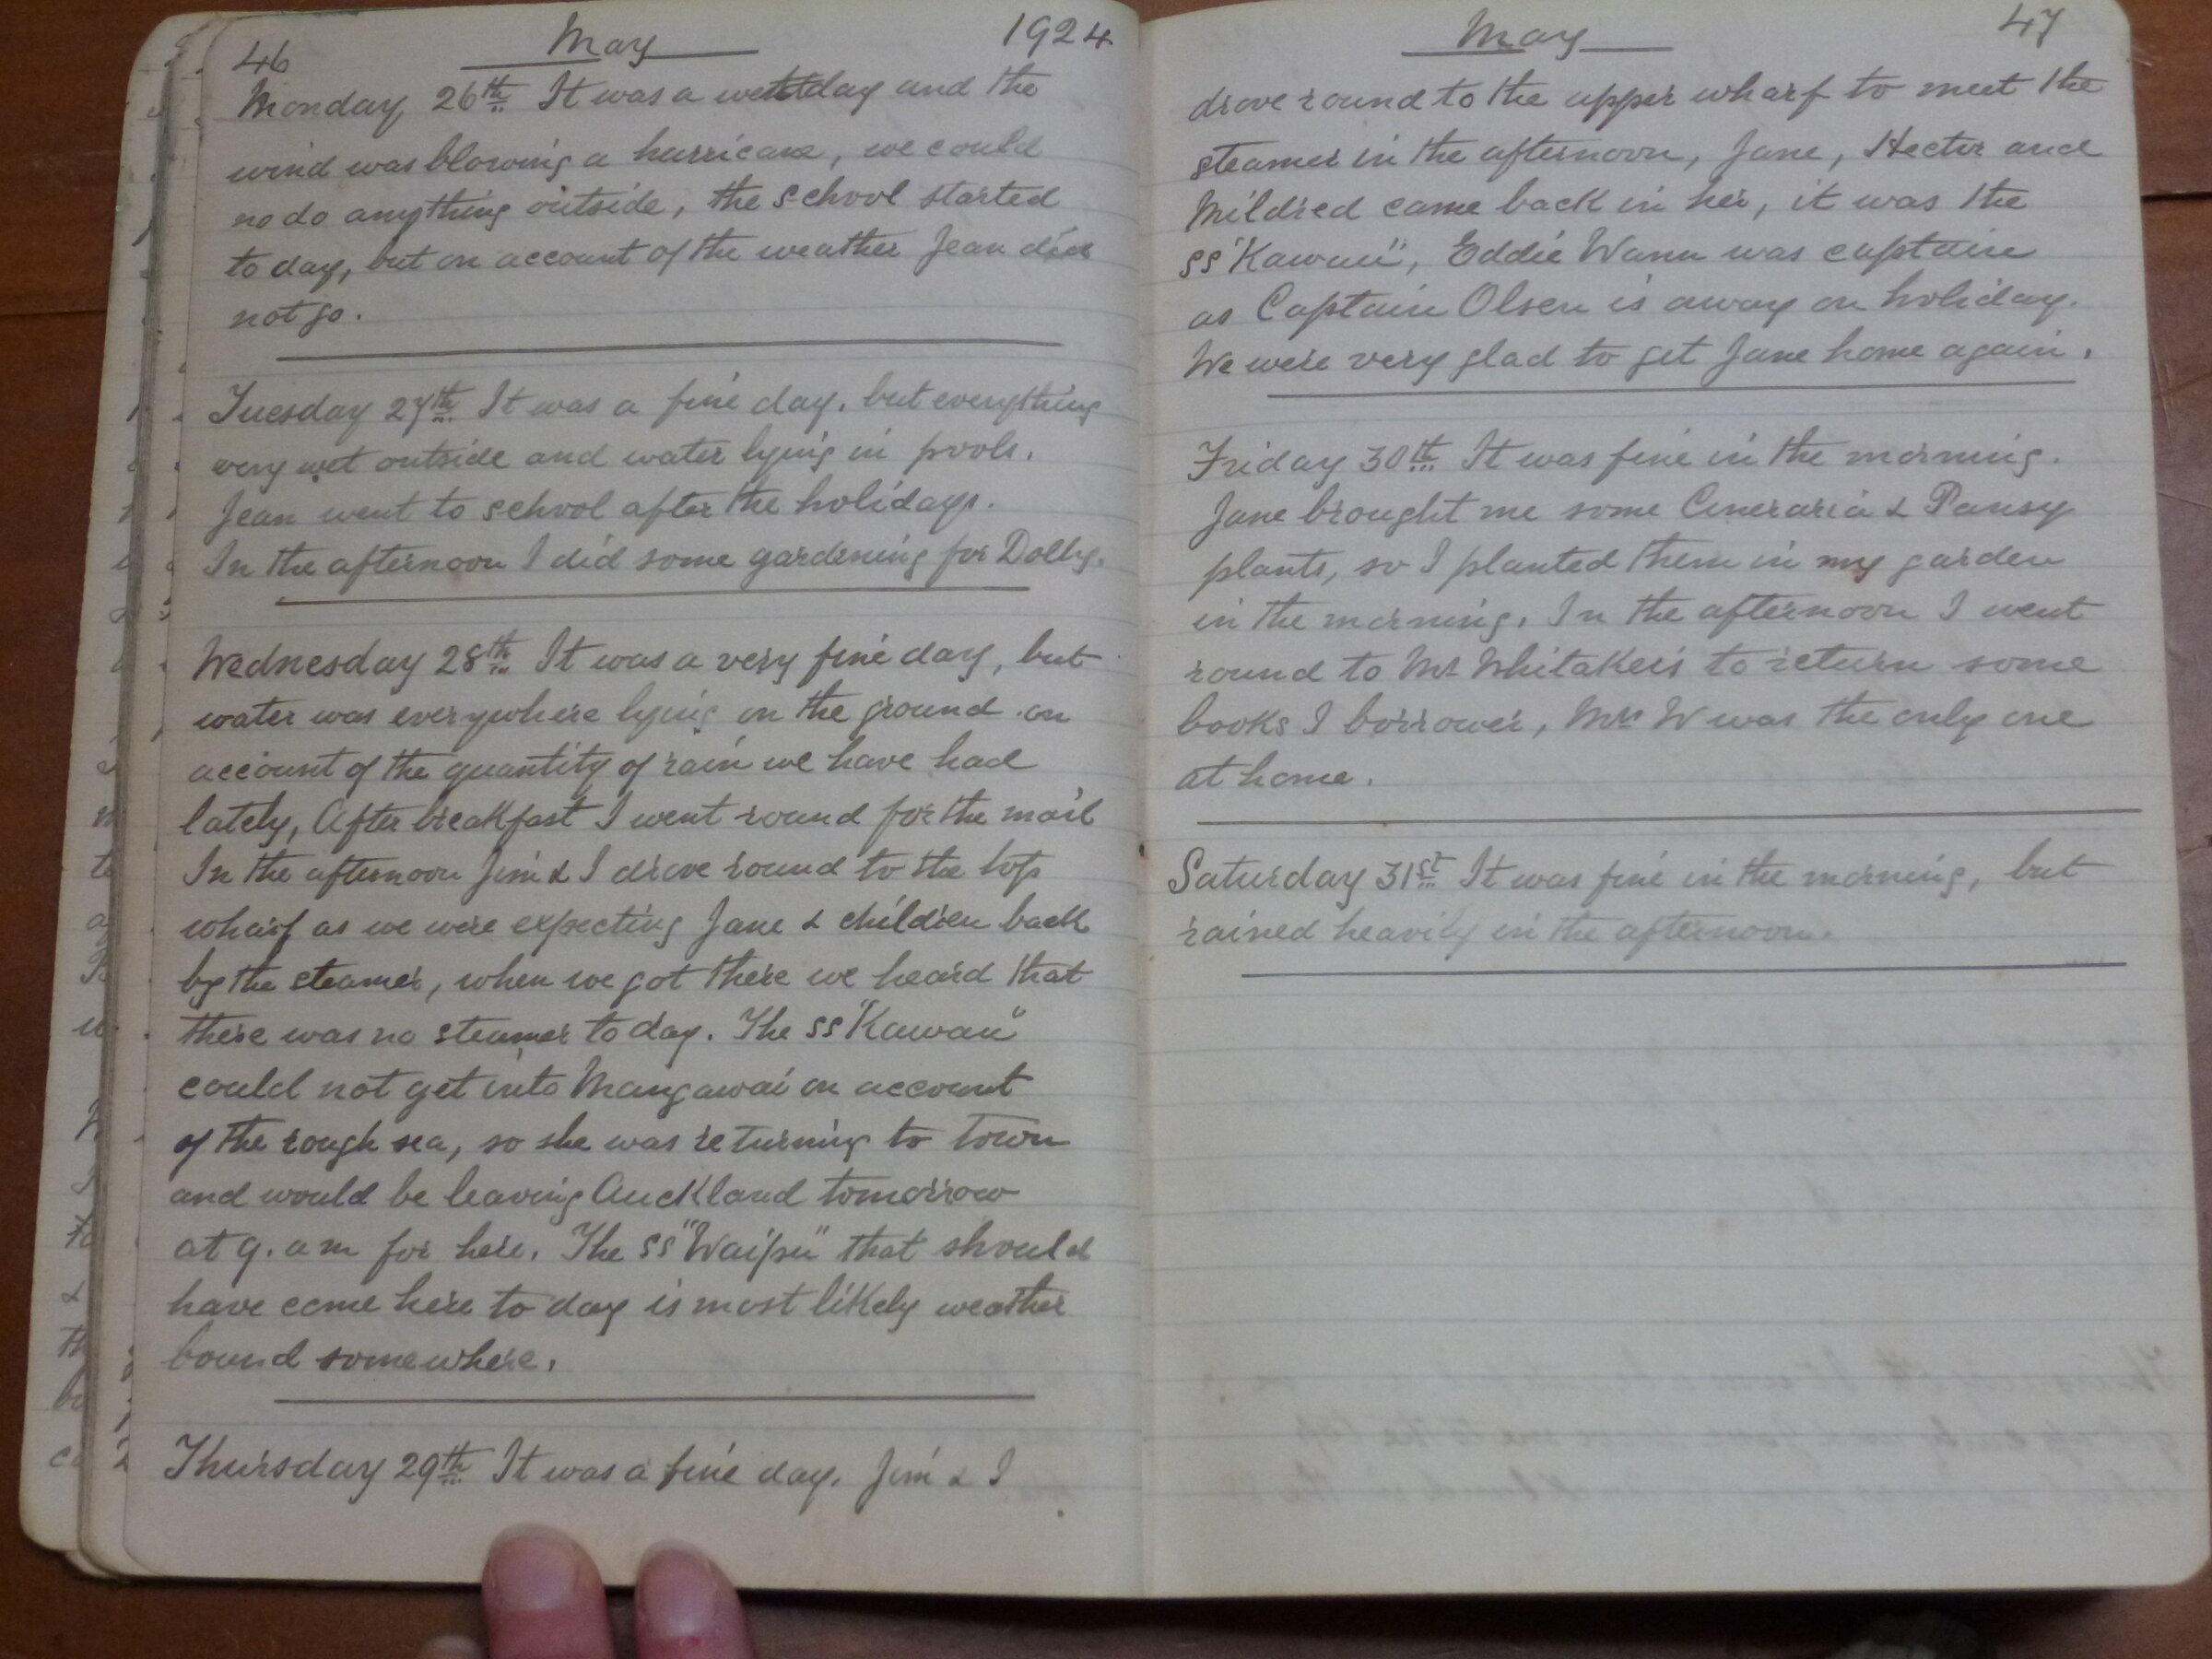 46 May 1924
Monday 26th It was a wet day and the
wind was blowing a hurricane, we could
no do anything outside, the school started
to day, but on account of the weather Jean did
not go.
Tuesday 27th It was a fine day, but everything
very wet outside and water lying in pools.
Jean went to school after the holidays.
In the afternoon I did some gardening for Dolly.
Wednesday 28th It was a very fine day, but
water was everywhere lying on the ground on
account of the quantity of rain we have had
lately, After breakfast I went round for the mail
In the afternoon Jim & I drove round to the top
wharf as we were expecting Jane & children back
by the steamer, when we got there we heard that
there was no steamer to day. The ss "Kawau"
could not get into Mangawai on account
of the rough sea, so she was returning to town
and would be leaving Auckland tomorrow
at 9. am for here. The ss "Waipu" that should
have come here to day is most likely weather
bound somewhere.
Thursday 29th It was a fine day. Jim & I
May 47
drove round to the upper wharf to meet the
steamer in the afternoon, Jane, Hector and
Mildred came back in her, it was the
ss "Kawau", Eddie Wann was captain
as Captain Olsen is away on holiday.
We were very glad to get Jane home again.
Friday 30th It was fine in the morning.
Jane brought me some Cineraria & Pansy
plants, so I planted them in my garden
in the morning. In the afternoon I went
round to Mr Whitakers to return some
books I borrower, Mrs W was the only one
at home.
Saturday 31st It was fine in the morning, but
rained heavily in the afternoon.